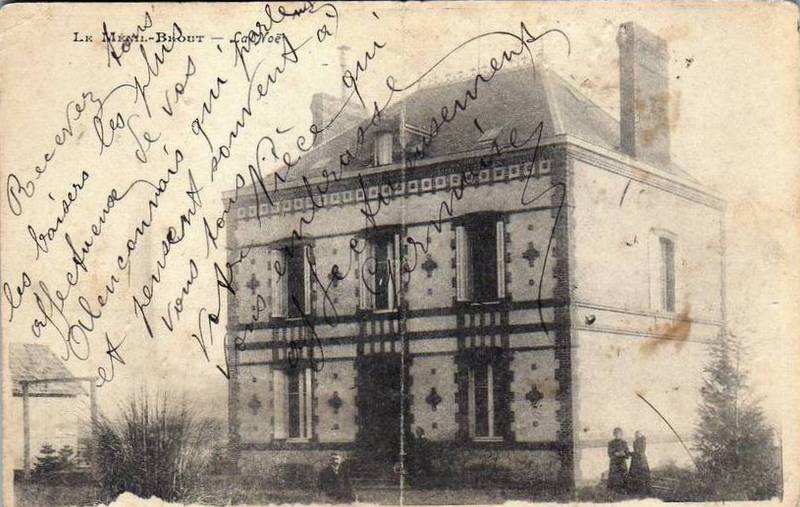 LE MÉNIL-BROUT — La Noë
Recevez tous
les baisers les plus
affectueux de vos
Alençonnais qui parlent
et pensent souvent à
vous tous
Votre Nièce qui
vous embrasse
affectueusement
Germaine